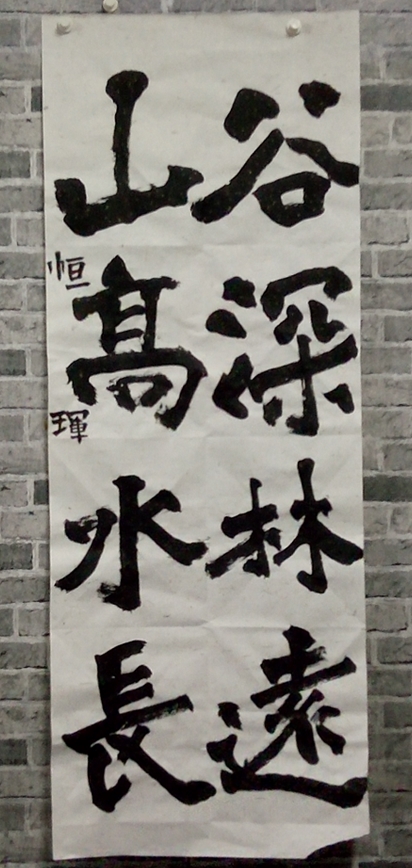 谷深林遠
山髙水長
恒琿